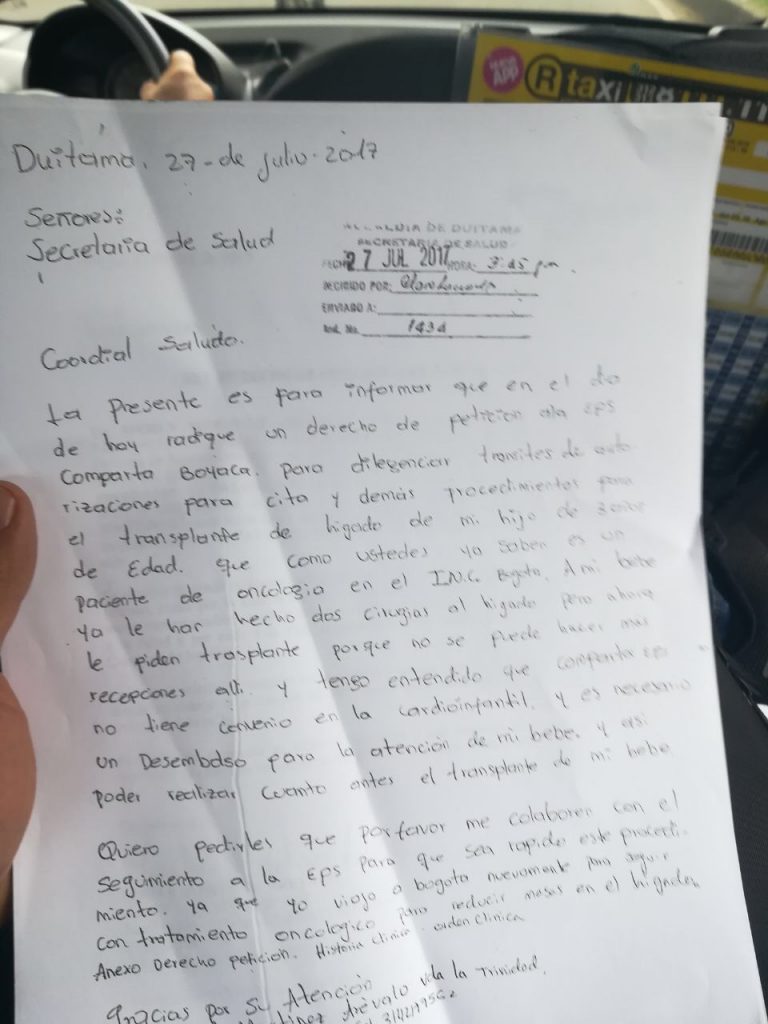 NUEVA APP
R taxi
Duitama, 27-de julio-2017
Señores:
Secretaria de Salud
ALCALDIA DE DUITAMA
SECRETARIA DE SALUD
FECHA 27 JUL 2017 HORA: 3:45 pm.
RECIBIDO POR:
ENVIADO A:
Rad. No. 1434
Coordial Saludo.
La presente es para informar que en el dia
de hoy radique un derecho de peticion ala eps
Comparta Boyaca. para diligenciar tramites de auto
rizaciones para cita y demás procedimientos para
el transplante de higado de mi hijo de 3 años
de Edad. que como ustedes ya saben es un
paciente de oncologia en el I.N.C Bogota. A mi bebe
ya le han hecho dos cirugias al higado pero ahora
le piden trasplante porque no se puede hacer mas
recepciones alli. y tengo entendido que comparta eps
no tiene convenio en la cardioinfantil. y es necesario
un Desembolso para la atención de mi bebe. y asi
poder realizar cuanto antes el transplante de mi bebe
Quiero pedirles que por favor me colaboren con el
seguimiento a la Eps para que sea rapido este procedi-
miento. ya que yo viajo a bogota nuevamente para seguir
con tratamiento oncologico para reducir masas en el higado.
Anexo Derecho peticion. Historia clinica. orden clinica
Gracias por su Atención
Arévalo vda la Trinidad.